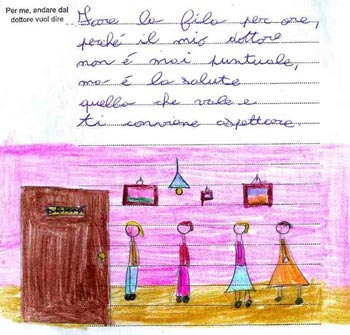 Per me, andare dal
dottore vuol dire
Fare la fila per ore,
perché il mio dottore
non é mai puntuale,
ma é la salute
quella che vale e
ti conviene aspettare.